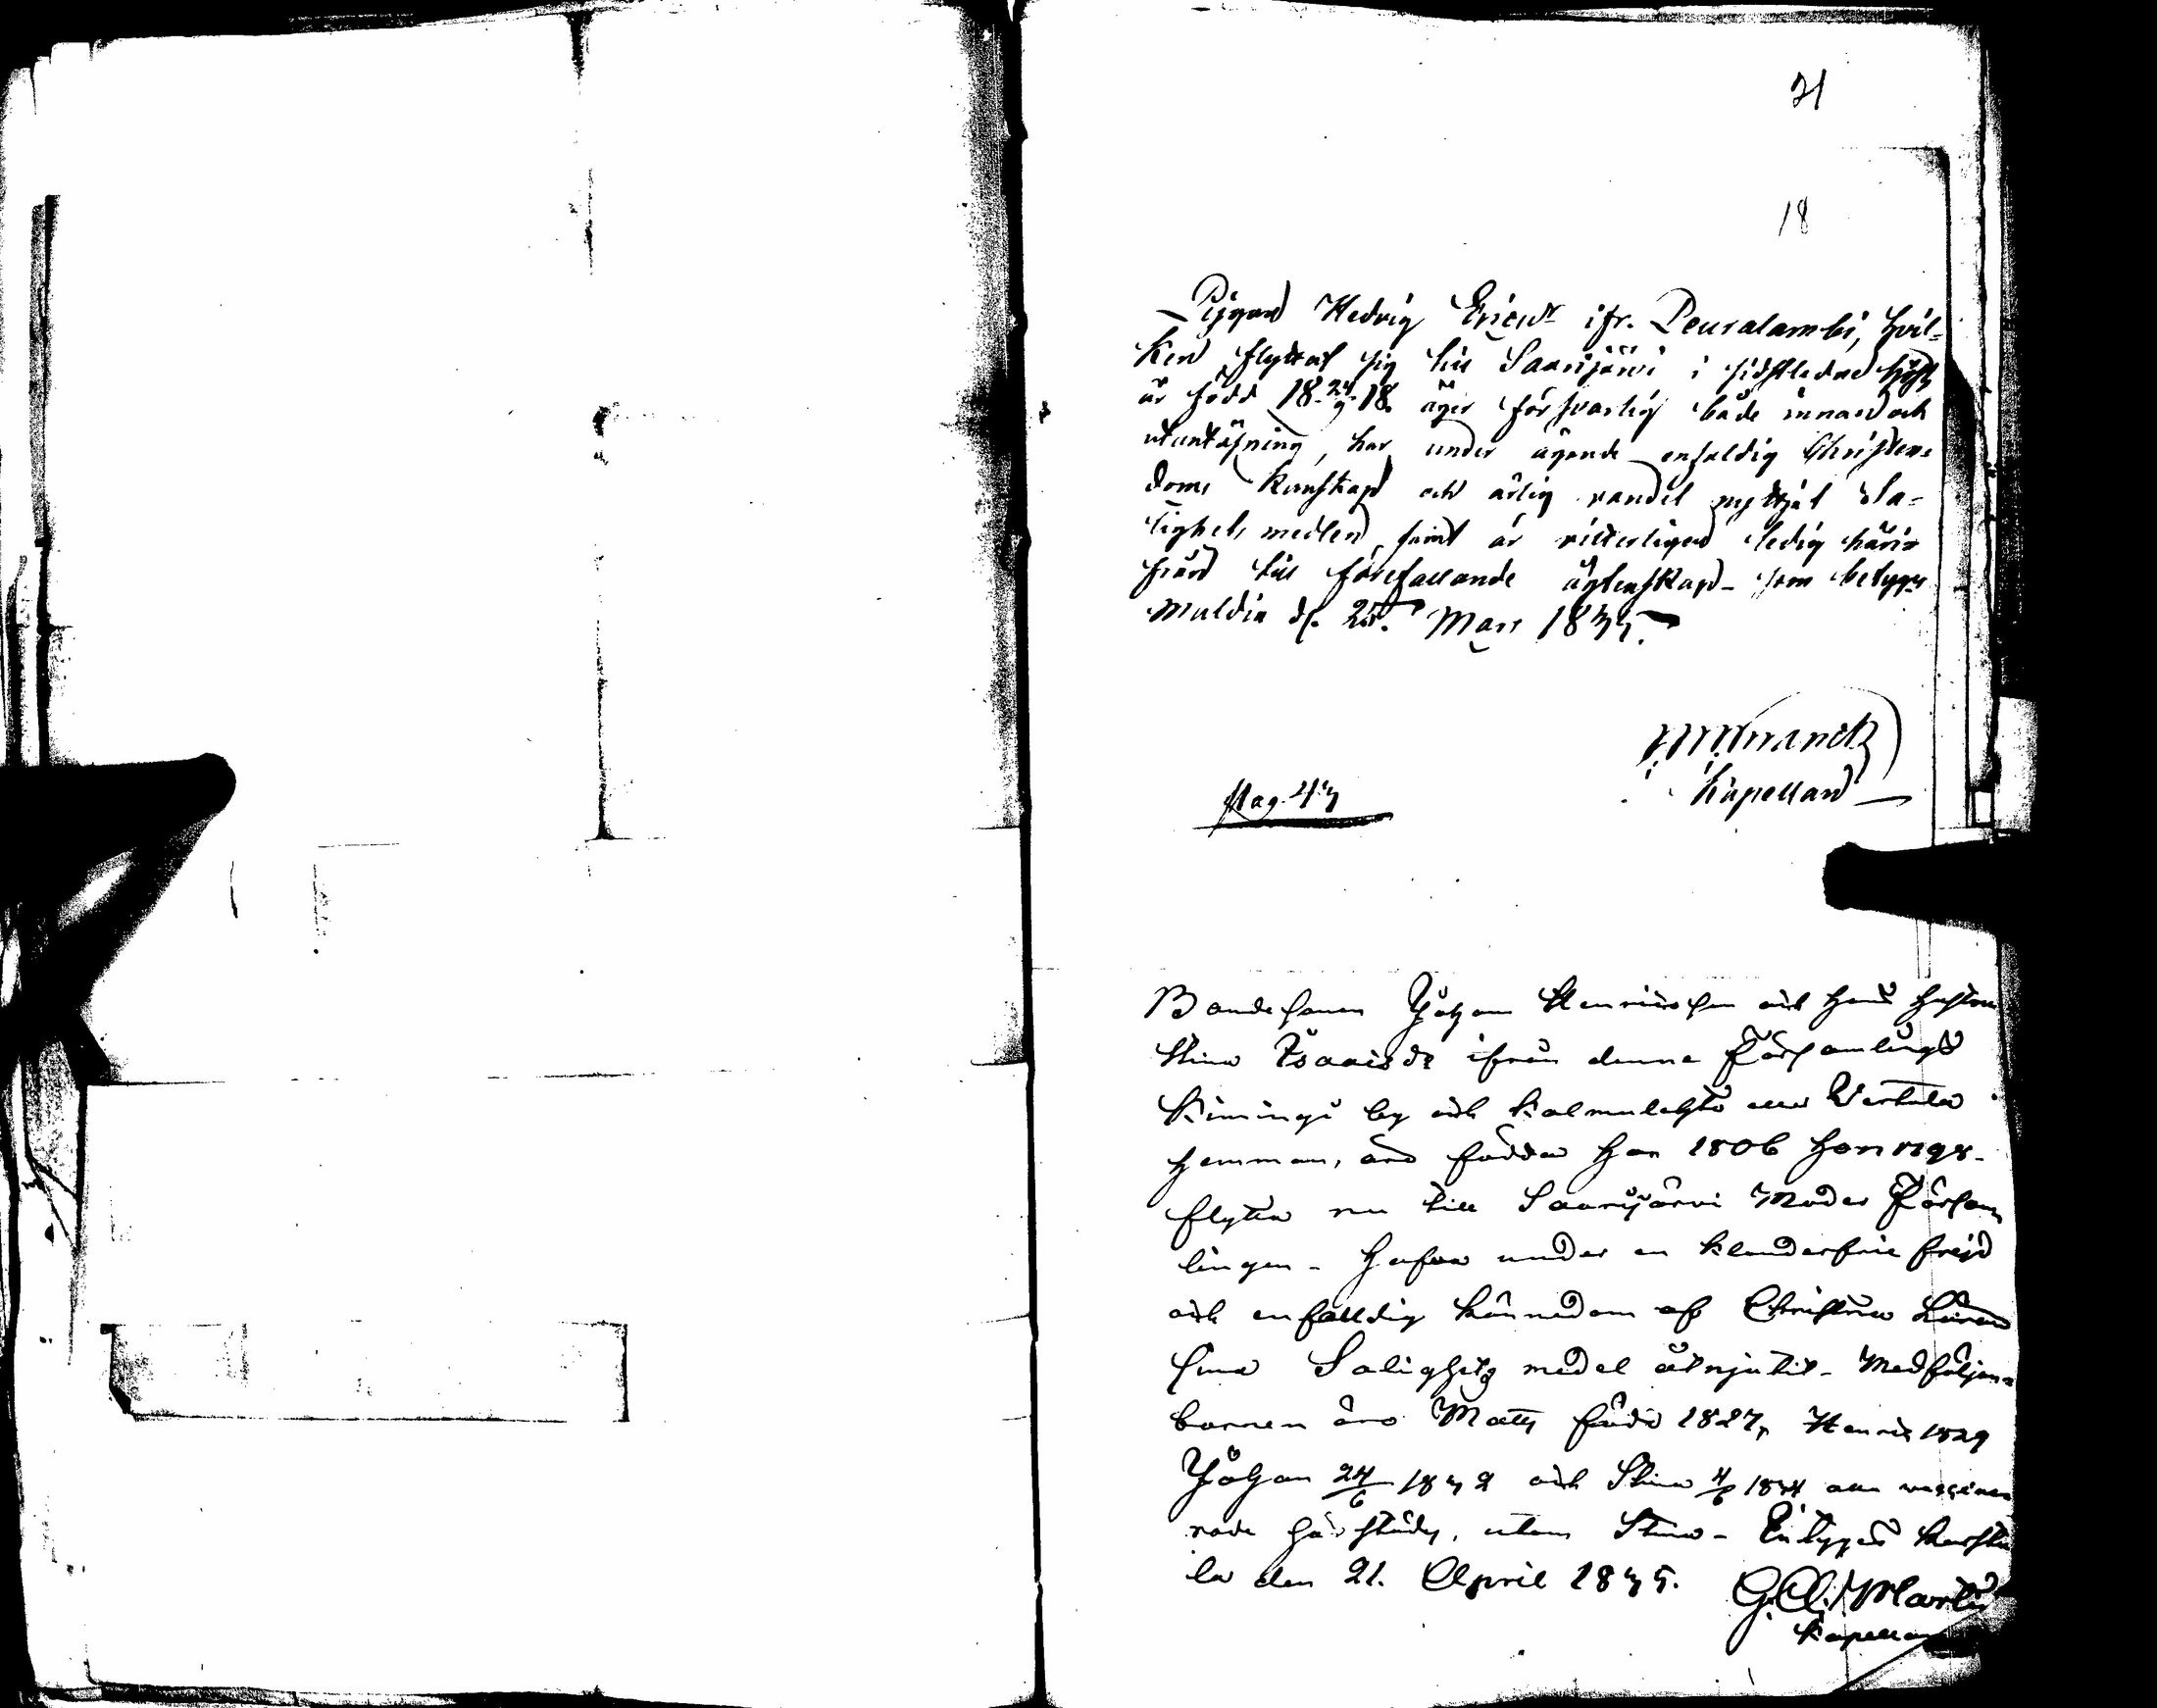 21
18
Pigan Hedvig Ericsdr ifr. Peuralambi, hvil-
ken flyttat sig till Saarijärvi i sidstledne höst,
är född 18 24/9 18. äger försvarlig både innan och
utanläsning, har under ägande enfaldig Christen-
doms kunskap och ärlig vandel nyttjat Sa-
lighets medlen, samt är vitterligen ledig häri-
från till förefallande äktenskap - som betygas
Multia d. 25. Mars 1835.
Kapellan
pag. 43
Bondesonen Johan Henricsson och hans hustru
Stina Isaacsdr ifrån denna Församlings
Kimingi by och Kalmulahto eller
hemman, äro födda han 1806 hon 1798.
flytta nu till Saarijärvi Moder Försam-
lingen - hafva under en klanderfri frejd
och enfalldig kännedom af Christna Läran
sina Salighets medel åtnjutit - Medföljan-
barnen äro Matts född 1827, Henric 1829
Johan 24/6 1832 och Stina 4/6 1834 alla vaccine-
rade härstädes, utom Stina - Betygas Karstu-
la den 21. April 1835.
Kapellan